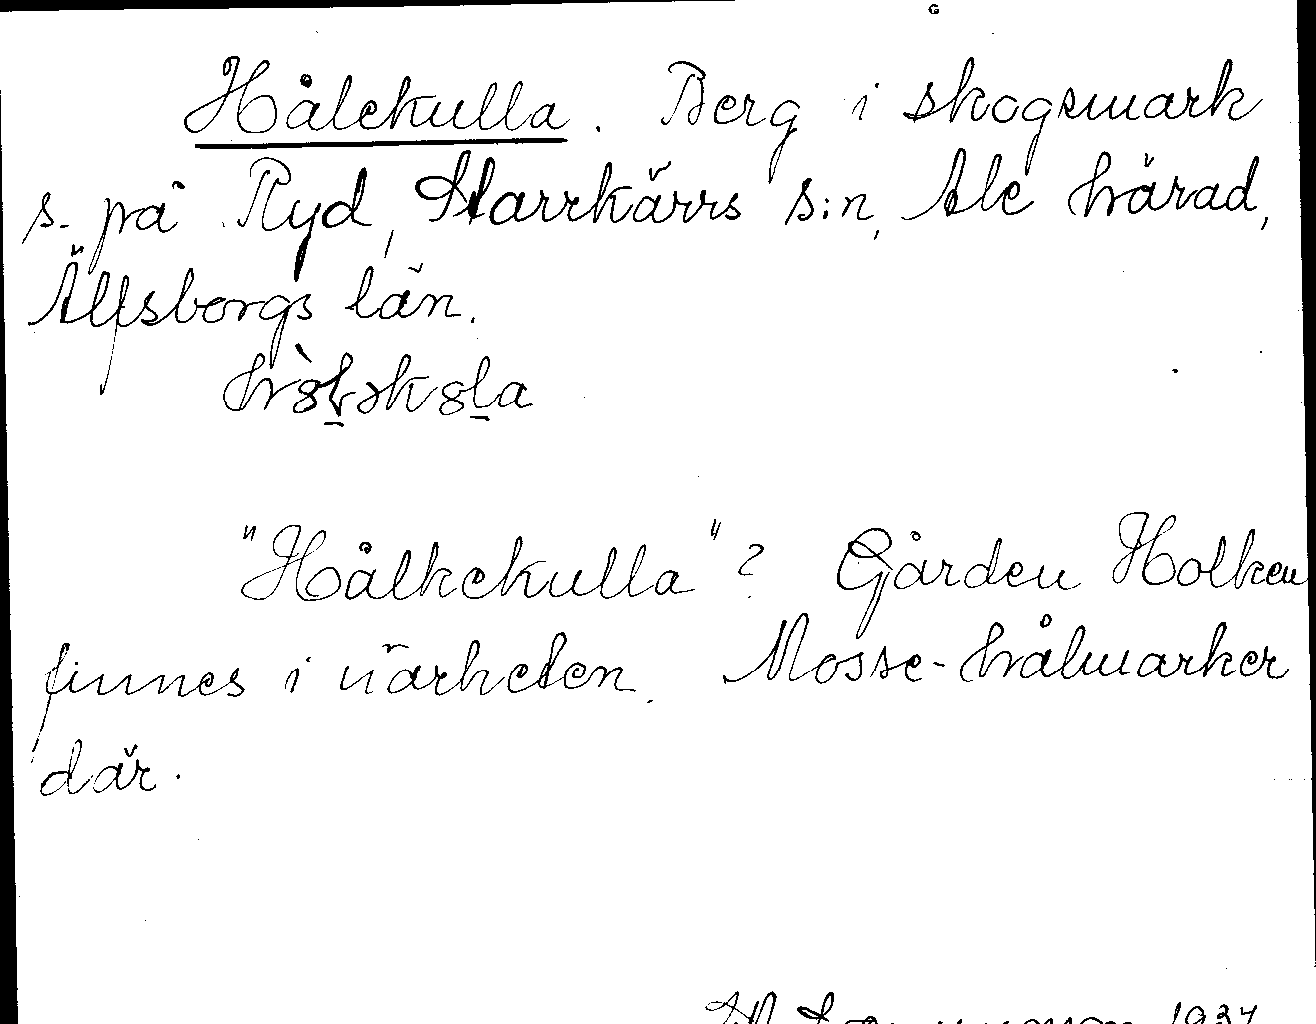 Hålekulla. Berg i skogsmark
s. på Ryd, Starrkärrs s:n, Ale härad,
Älfsborgs län.
"Hålkekulla"? Gården Holken
finnes i närheten. Mosse-hålmarker
där.
1934